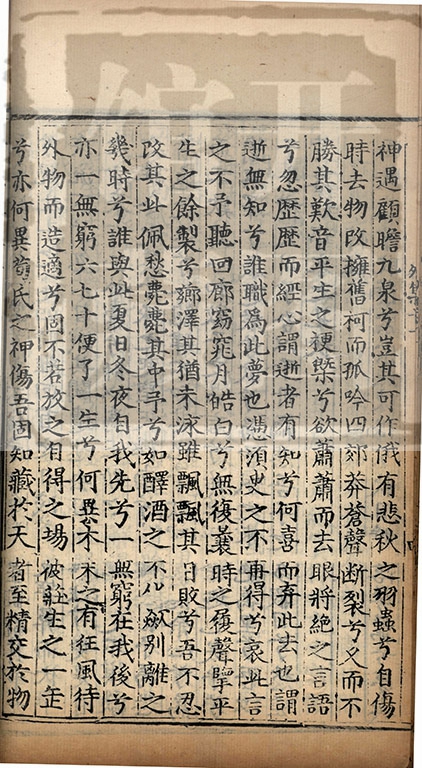 神遇顧瞻九泉兮豈其可作俄有悲秋之羽蟲兮自傷
時去物改擁舊柯而孤吟四郊莽蒼聲斷裂兮又而不
勝其歎音平生之梗槩兮欲蕭蕭而去眼將絶之言語
兮忽歷歷而經心謂逝者有知兮何喜而弃此去也謂
逝無知兮誰職為此夢也憑湏史之不再得兮哀此言
之不予聽回廊窈窕月皓白兮無復曩時之屧聲掔平
生之餘製兮薌澤其猶未泳雖飄飄其日敗兮吾不忍
改其此佩愁薨薨其中予兮如醳酒之不以歘别離之
幾時兮誰與此夏日冬夜自我先兮一無窮在我後兮
亦一無窮六七十便了一生兮何異木末之有狂風待
外物而造適兮固不若放之自得之塲彼莊生之一缶
兮亦何異荀氏之神傷吾因知藏扵天者至精交扵物